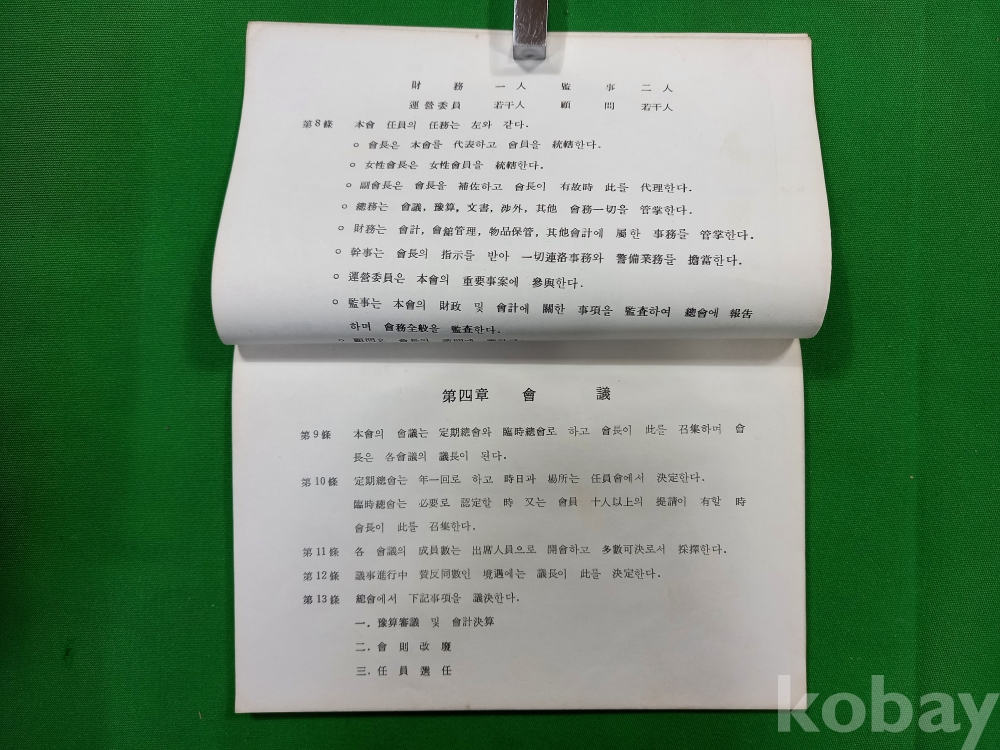 財 務 一人 監 事 二人
運營委員 若干人 顧 問 若干人
第8條 本會 任員의 任務는 左와 같다.
○ 會長은 本會를 代表하고 會員을 統轄한다.
○ 女性會長은 女性會員을 統轄한다.
○ 副會長은 會長을 補佐하고 會長이 有故時 此를 代理한다.
○ 總務는 會議, 豫算, 文書, 涉外, 其他 會務一切을 管掌한다.
○ 財務는 會計, 會舘管理, 物品保管, 其他會計에 屬한 事務를 管掌한다.
○ 幹事는 會長의 指示를 받아 一切連洛事務와 警備業務를 擔當한다.
○ 運營委員은 本會의 重要事案에 參與한다.
○ 監事는 本會의 財政 및 會計에 關한 事項을 監査하여 總會에 報告
하며 會務全般을 監査한다.
第四章 會 議
第9條 本會의 會議는 定期總會와 臨時總會로 하고 會長이 此를 召集하며 會
長은 各會議의 議長이 된다.
第10條 定期總會는 年一回로 하고 時日과 場所는 任員會에서 決定한다.
臨時總會는 必要로 認定할 時 又는 會員 十人以上의 提請이 有할 時
會長이 此를 召集한다.
第11條 各 會議의 成員數는 出席人員으로 開會하고 多數可決로서 採擇한다.
第12條 議事進行中 贊反同數인 境遇에는 議長이 此를 決定한다.
第13條 總會에서 下記事項을 議決한다.
一. 豫算審議 및 會計決算
二. 會則改廢
三. 任員選任
kobay